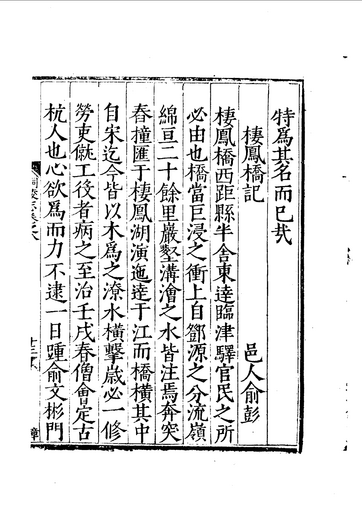 特爲其名而已㢤
棲鳳橋記
邑人俞彭
棲鳳橋西距縣半舍東達臨津驛官民之所
必由也橋當巨浸之衝上自鄧源之分流嶺
綿亘二十餘里巖壑溝澮之水皆注焉奔突
舂撞匯于棲鳳湖演迤達于江而橋橫其中
自宋迄今皆以木爲之潦水橫擊歲必一修
勞吏僦工後者病之至治壬戌春僧會定古
杭人也心欲爲而力不逮一日踵俞文彬門